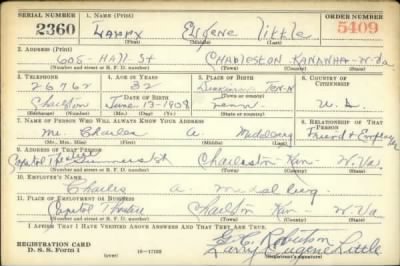 SERIAL NUMBER 1. NAME (Print) ORDER NUMBER
2360 Larry Eugene Little 5409
(First) (Middle) (Last)
2. ADDRESS (Print)
605-Hall St Charleston Kanawha-W-Va
(Number and street or R. F. D. number) (Town) (County) (State)
3. TELEPHONE 4. AGE IN YEARS 5. PLACE OF BIRTH 6. COUNTRY OF CITIZENSHIP
26762 32 Tenn
DATE OF BIRTH
Charlston June-13-1908 Tenn U.S.
(Exchange) (Number) (Mo.) (Day) (Yr.) (State or country)
7. NAME OF PERSON WHO WILL ALWAYS KNOW YOUR ADDRESS 8. RELATIONSHIP OF THAT PERSON
Mr. Charles A. Middleburg Friend & Employer
(Mr., Mrs., Miss) (First) (Middle) (Last)
9. ADDRESS OF THAT PERSON
Capitol Theatre Summers St Charleston-Kan- W. Va
(Number and street or R. F. D. number) (Town) (County) (State)
10. EMPLOYER'S NAME
Charles A. Middelburg
11. PLACE OF EMPLOYMENT OR BUSINESS
Capitol Theatre Charlston Kan- W-Va
(Number and street or R. F. D. number) (Town) (County) (State)
I AFFIRM THAT I HAVE VERIFIED ABOVE ANSWERS AND THAT THEY ARE TRUE.
Robertson
REGISTRATION CARD
D. S. S. Form 1 (over) 16—17105 Larry Eugene Little